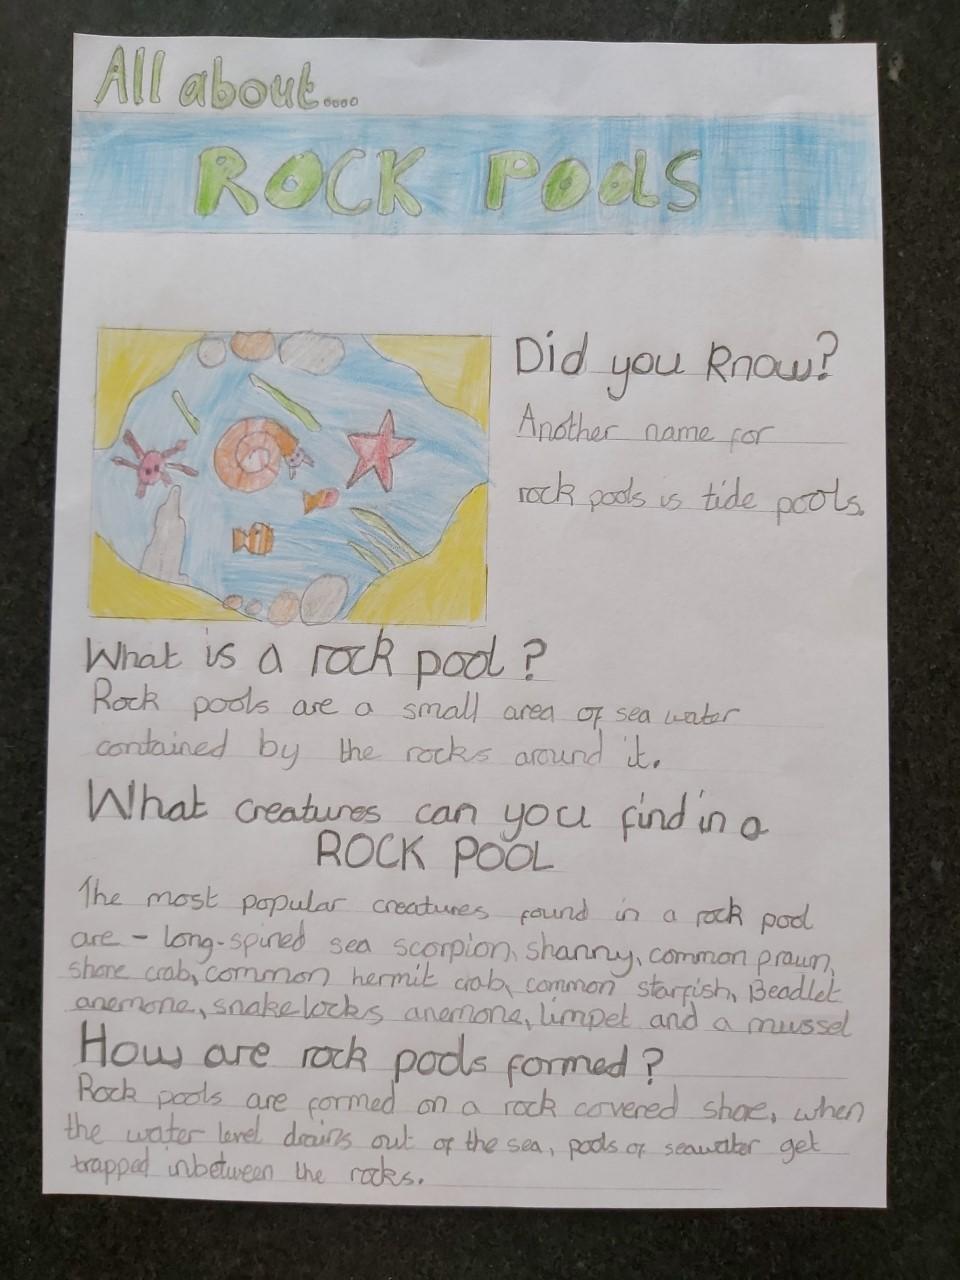 All about....
ROCK POOLS
Did you know?
Another name for
rock pools is tide pools.
What is a rock pool?
Rock pools are a small area of sea water
contained by the rocks around it.
What creatures can you find in a
ROCK POOL
The most popular creatures found in a rock pool
are - long-spined sea scorpion, shanny, common prawn,
shore crab, common hermit crab, common starfish, Beadlet
anemone, snakelocks anemone, limpet and a mussel
How are rock pools formed?
Rock pools are formed on a rock covered shore, when
the water level drains out of the sea, pools of seawater get
trapped inbetween the rocks.